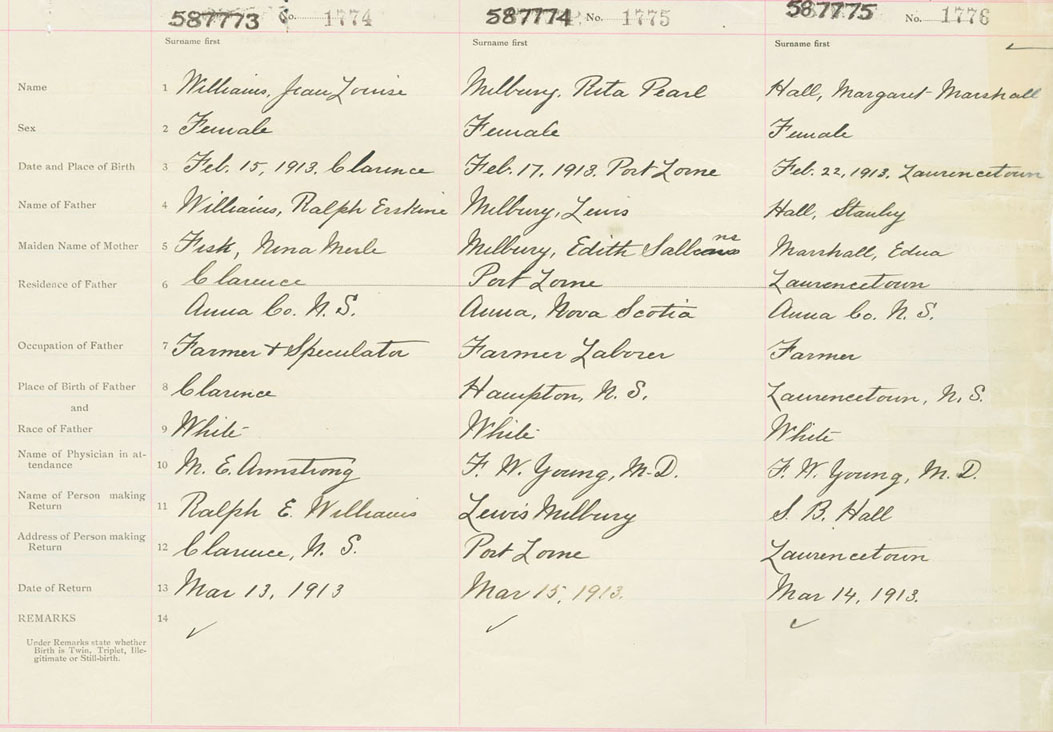 587773 No. 1774 587774 No. 1775 587775 No. 1776
Surname first Surname first Surname first
Name 1 Williams, Jean Louise Milbury, Rita Pearl Hall, Margaret Marshall
Sex 2 Female Female Female
Date and Place of Birth 3 Feb. 15, 1913. Clarence Feb. 17, 1913. Port Lorne Feb. 22, 1913. Laurencetown
Name of Father 4 Williams, Ralph Erskine Milbury, Lewis Hall, Stanley
Maiden Name of Mother 5 Fisk, Nina Merle Milbury, Edith Marshall, Edna
Residence of Father 6 Clarence Port Lorne Laurencetown
Anna Co. N.S. Anna, Nova Scotia Anna Co. N.S.
Occupation of Father 7 Farmer & Speculator Farmer Laborer Farmer
Place of Birth of Father 8 Clarence Hampton, N.S. Laurencetown, N.S.
and
Race of Father 9 White White White
Name of Physician in at-
tendance 10 M. E. Armstrong F. W. Young, M.D. F. W. Young, M.D.
Name of Person making
Return 11 Ralph E. Williams Lewis Milbury S. B. Hall
Address of Person making
Return 12 Clarence, N.S. Port Lorne Laurencetown
Date of Return 13 Mar 13, 1913 Mar 15, 1913. Mar 14, 1913.
REMARKS 14
Under Remarks state whether
Birth is Twin, Triplet, Ille-
gitimate or Still-birth.